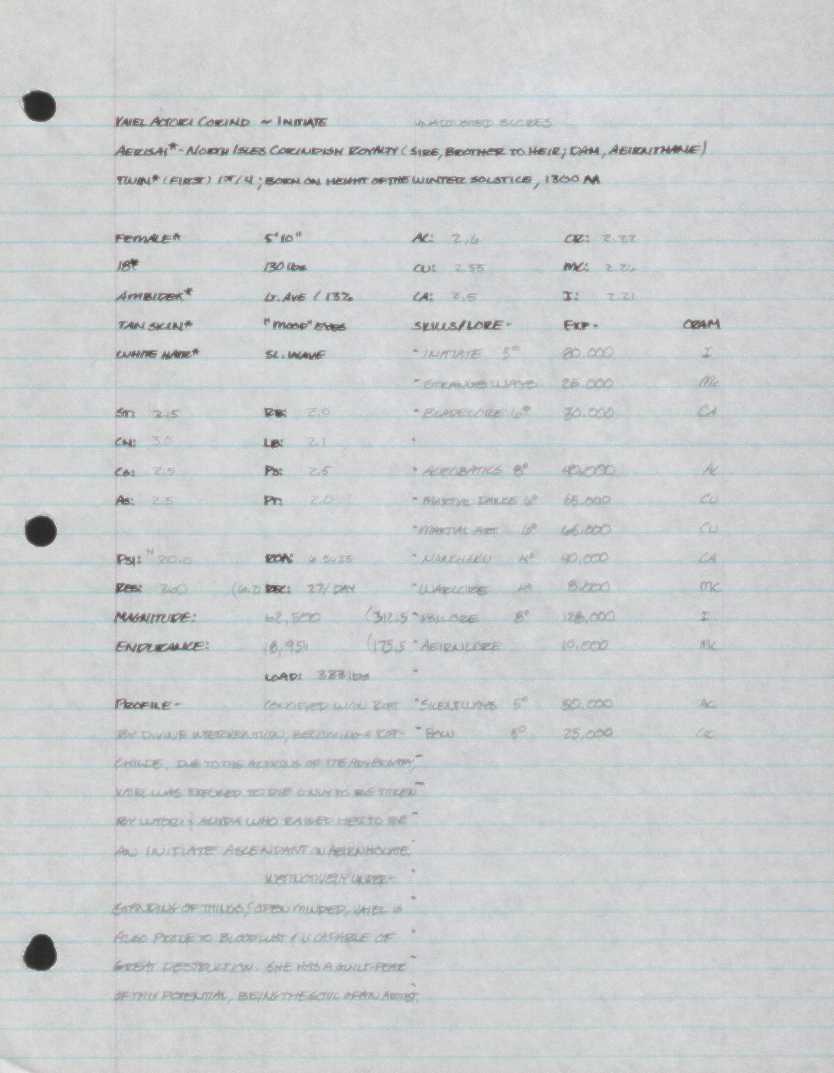 Vaiel Actori Corind ~ Initiate unadjusted scores
Aerisai* - North Isles Corindish Royalty (Sire, Brother to Heir; Dam, Aeirnithane)
Twin* (First) 1st/4; Born on Height of the Winter Solstice, 1300 AA
Female* 5'10" AC: 2.6 CR: 2.22
18* 130 lbs CU: 2.55 MC:
Ambidex* Lt. Ave / 13% CA: 2.5 I: 2.21
Tan Skin* "Mood" Eyes Skills/Lore - Exp. - CRAM
White Hair* Sl. Wave - Initiate 5° 20,000 I
25,000 MC
St: 2.5 RB: 2.0 - Bladelore 6° 30,000 CA
CN: 3.0 LB: 2.1 -
2.5 Ps: 2.5 - Acrobatics 8° 40,000 AC
As: 2.5 Pr: 2.0 - Martial Dance 6° 65,000 CU
- Martial Art 6° 65,000 CU
Psi: 20.0 40,000 CA
Res: 260 Rec: 27/Day 5,000 MC
Magnitude: 62,500 (312.5 - Psilore 8° 128,000 I
Endurance: 18,951 (175.5 - Aeirnlore 10,000 MC
Load: 383 lbs -
Profile - Concieved upon - Silentways 5° 50,000 AC
by Divine Intervention, Becoming a - Bow 5° 25,000
Childe. Due to the actions of the -
was exposed to die only to be taken -
by & who raised her to be -
an Initiate Ascendant in Aeirnhouse. -
Instinctively under- -
standing of things / open minded, Vaiel is -
also prone to bloodlust & is capable of -
great destruction. She has a guilt-fear -
of this potential, being the soul of an Artist. -